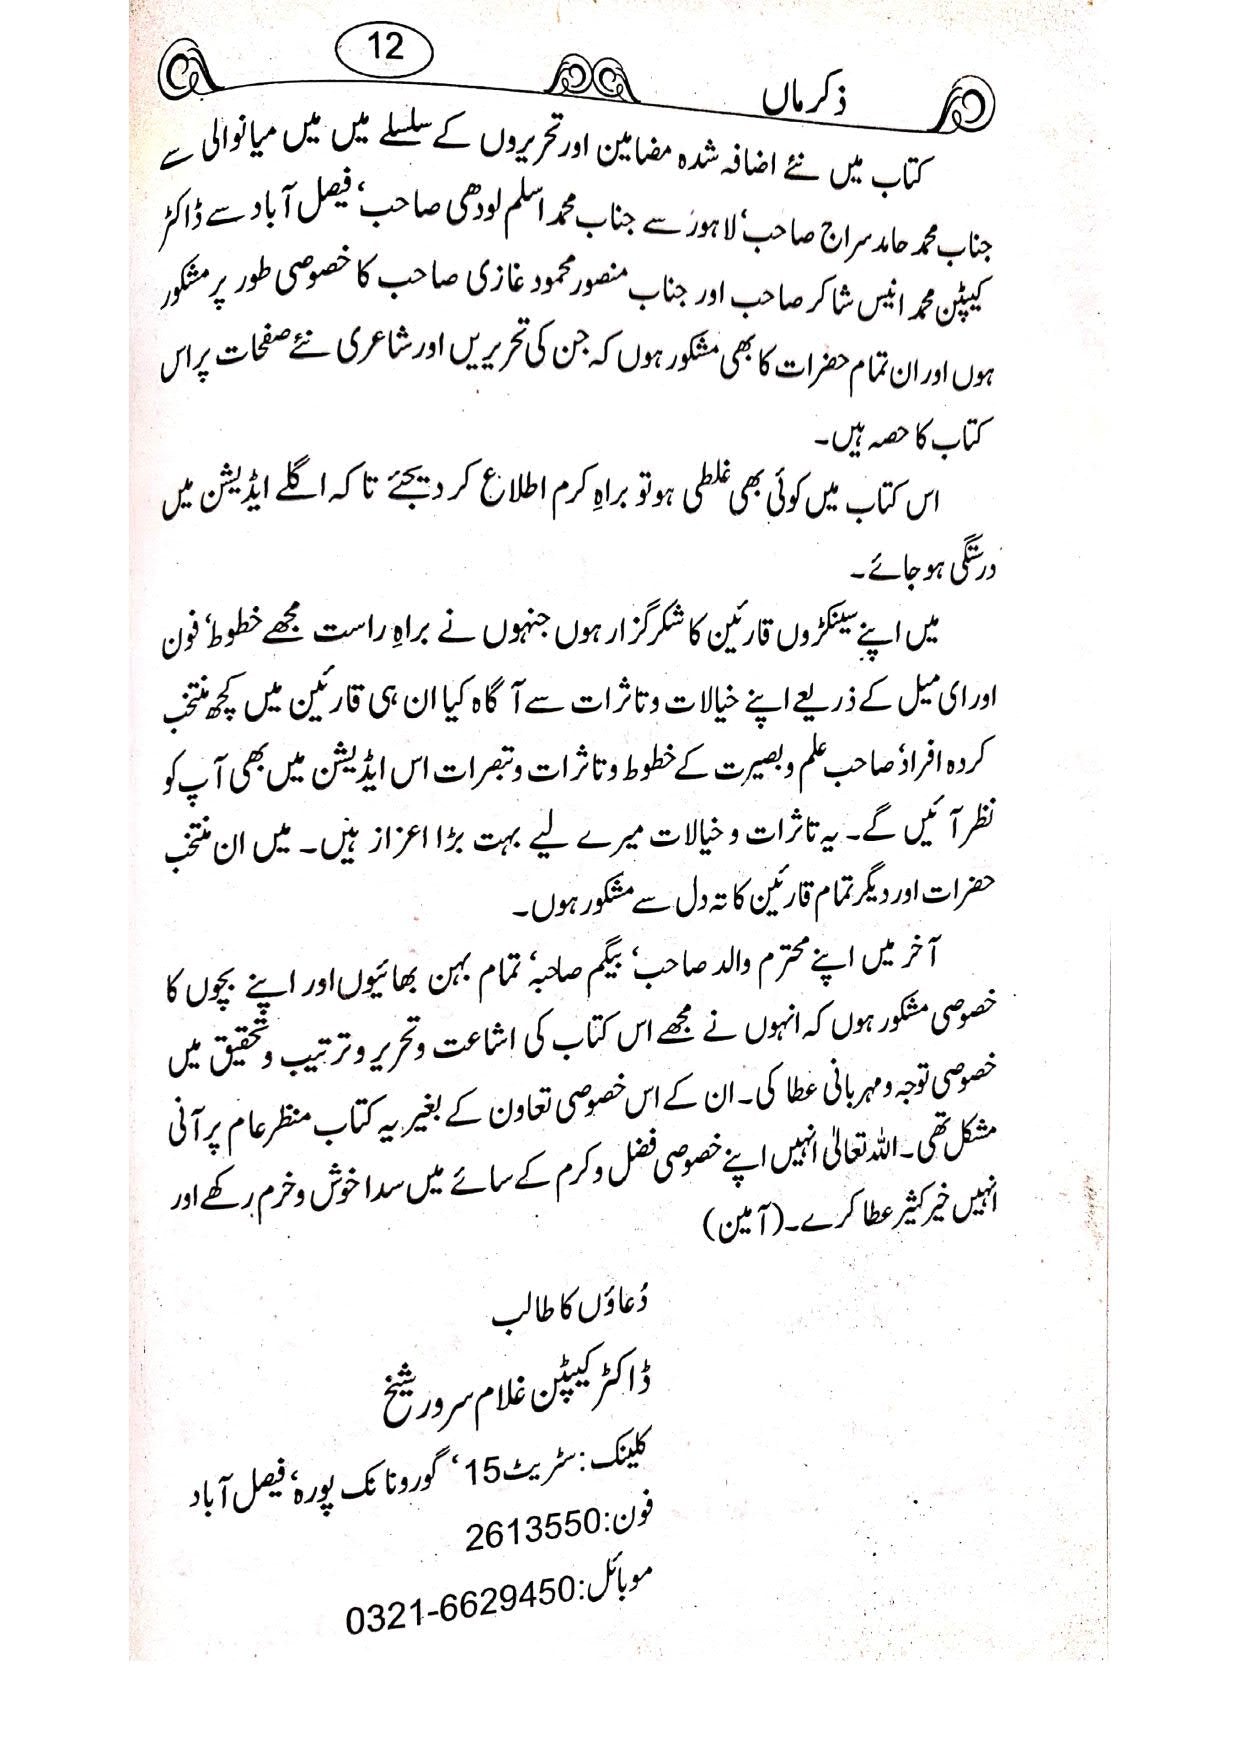 12
ذکر ماں
کتاب میں نئے اضافہ شدہ مضامین اور تحریروں کے سلسلے میں میں میانوالی سے
جناب محمد حامد سراج صاحب‘ لاہور سے جناب محمد اسلم لودھی صاحب‘ فیصل آباد سے ڈاکٹر
کیپٹن محمد انیس شاکر صاحب اور جناب منصور محمود غازی صاحب کا خصوصی طور پر مشکور
ہوں اور ان تمام حضرات کا بھی مشکور ہوں کہ جن کی تحریریں اور شاعری نئے صفحات پر اس
کتاب کا حصہ ہیں۔
اس کتاب میں کوئی بھی غلطی ہو تو براہِ کرم اطلاع کر دیجئے تا کہ اگلے ایڈیشن میں
درستگی ہو جائے۔
میں اپنے سینکڑوں قارئین کا شکر گزار ہوں جنہوں نے براہِ راست مجھے خطوط‘ فون
اور ای میل کے ذریعے اپنے خیالات و تاثرات سے آ گاہ کیا ان ہی قارئین میں کچھ منتخب
کردہ افراد‘ صاحب علم و بصیرت کے خطوط و تاثرات و تبصرات اس ایڈیشن میں بھی آپ کو
نظر آئیں گے۔ یہ تاثرات و خیالات میرے لیے بہت بڑا اعزاز ہیں۔ میں ان منتخب
حضرات اور دیگر تمام قارئین کا تہ دل سے مشکور ہوں۔
آخر میں اپنے محترم والد صاحب‘ بیگم صاحبہ‘ تمام بہن بھائیوں اور اپنے بچوں کا
خصوصی مشکور ہوں کہ انہوں نے مجھے اس کتاب کی اشاعت و تحریر و ترتیب و تحقیق میں
خصوصی توجہ و مہربانی عطا کی۔ ان کے اس خصوصی تعاون کے بغیر یہ کتاب منظر عام پر آنی
مشکل تھی۔ اللہ تعالیٰ انہیں اپنے خصوصی فضل و کرم کے سائے میں سدا خوش و خرم رکھے اور
انہیں خیر کثیر عطا کرے۔ (آمین)
دُعاؤں کا طالب
ڈاکٹر کیپٹن غلام سرور شیخ
کلینک: سٹریٹ 15‘ گورونانک پورہ‘ فیصل آباد
فون: 2613550
موبائل: 0321-6629450